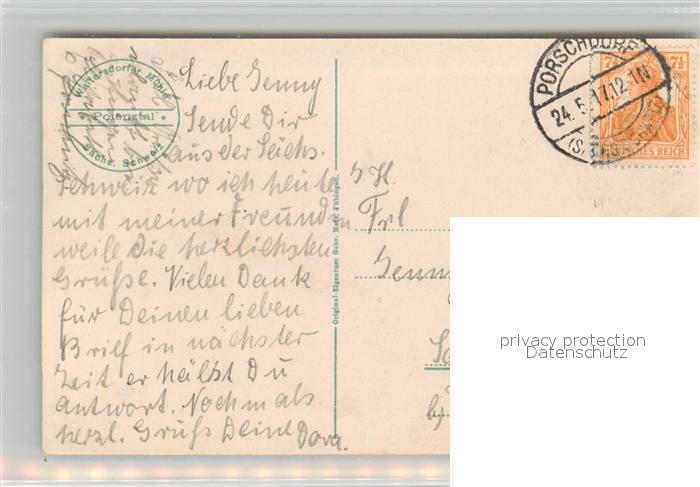 Waltersdorfer Mühle
Polenztal
Sächs. Schweiz
Liebe Jenny
Sende Dir
aus der Sächs.
Schweiz wo ich heute
mit meiner Freundin
weile die herzlichsten
Grüße. Vielen Dank
für Deinen lieben
Brief in nächster
Zeit erhälst Du
Antwort. Nochmals
herzl. Gruß Deine Dora.
Original-Eigentum Gebr. Metz, Tübingen.
PORSCHDORF
24.5.17.12-1N
DEUTSCHES REICH
7½ 7½
S.H.
Frl
Jenny
privacy protection
Datenschutz